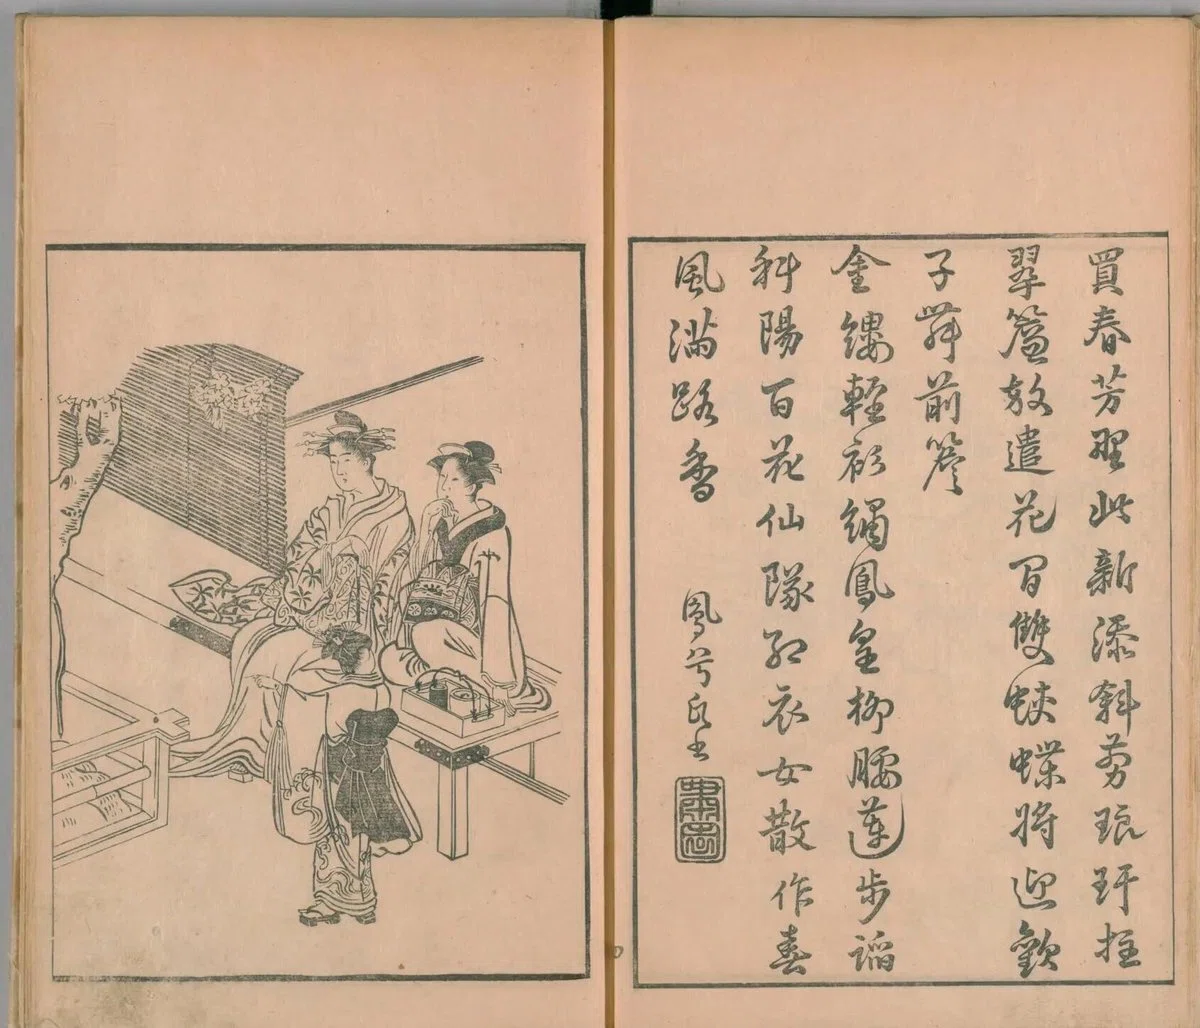 買春芳墅此新添斜剪琅玕挂
翠簾教遣花間雙蛺蝶將迎歡
子舞前簷
金縷輕衫繡鳳皇柳腰蓮步蹈
斜陽百花仙隊紅衣女散作春
風滿路香
鳳兮